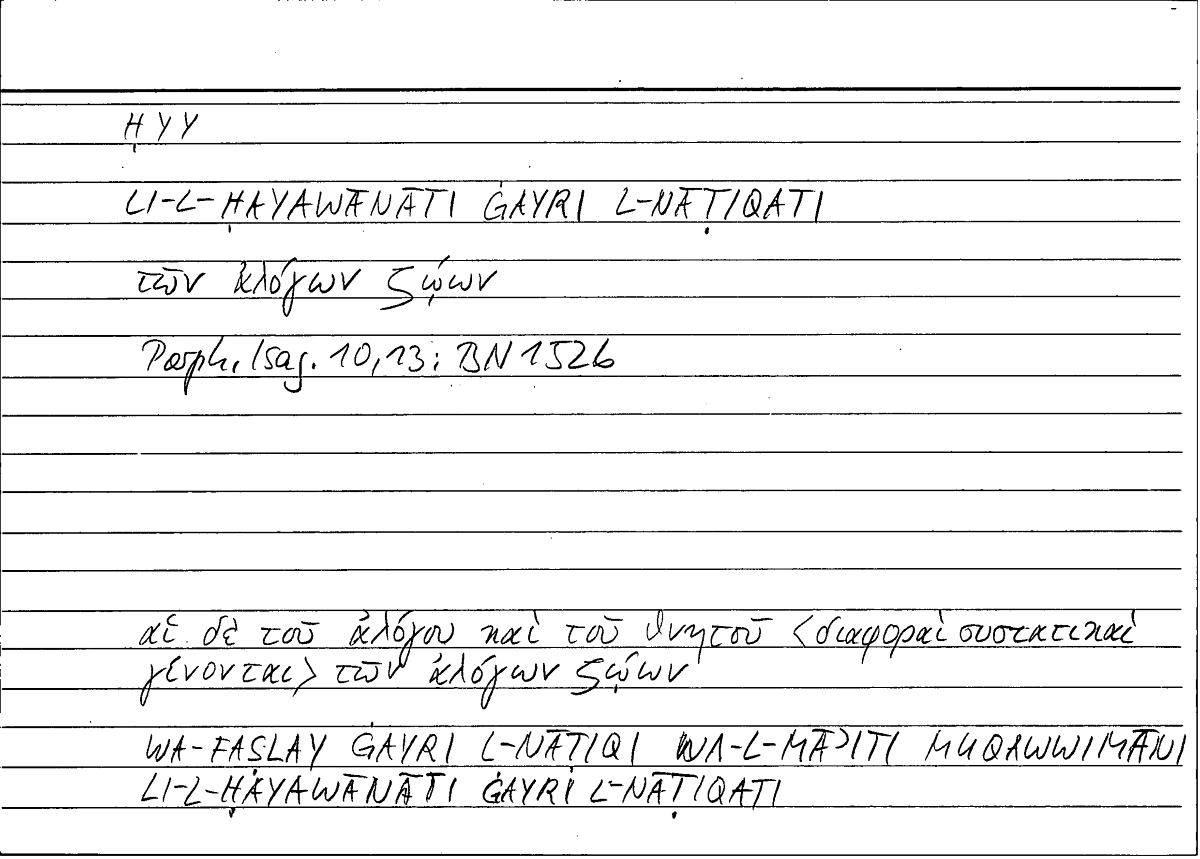 ḤYY
LI-L-ḤAYAWĀNĀTI ĠAYRI L-NĀṬIQATI
τῶν ἀλόγων ζῴων
Porph. Isag. 10,13; BN 1526
αἱ δὲ τοῦ ἀλόγου καὶ τοῦ θνητοῦ <διαφοραὶ συστατικαὶ
γίνονται> τῶν ἀλόγων ζῴων
WA-FAṢLAY ĠAYRI L-NĀṬIQI WA-L-MĀʾITI MUQAWWIMĀNI
LI-L-ḤAYAWĀNĀTI ĠAYRI L-NĀṬIQATI